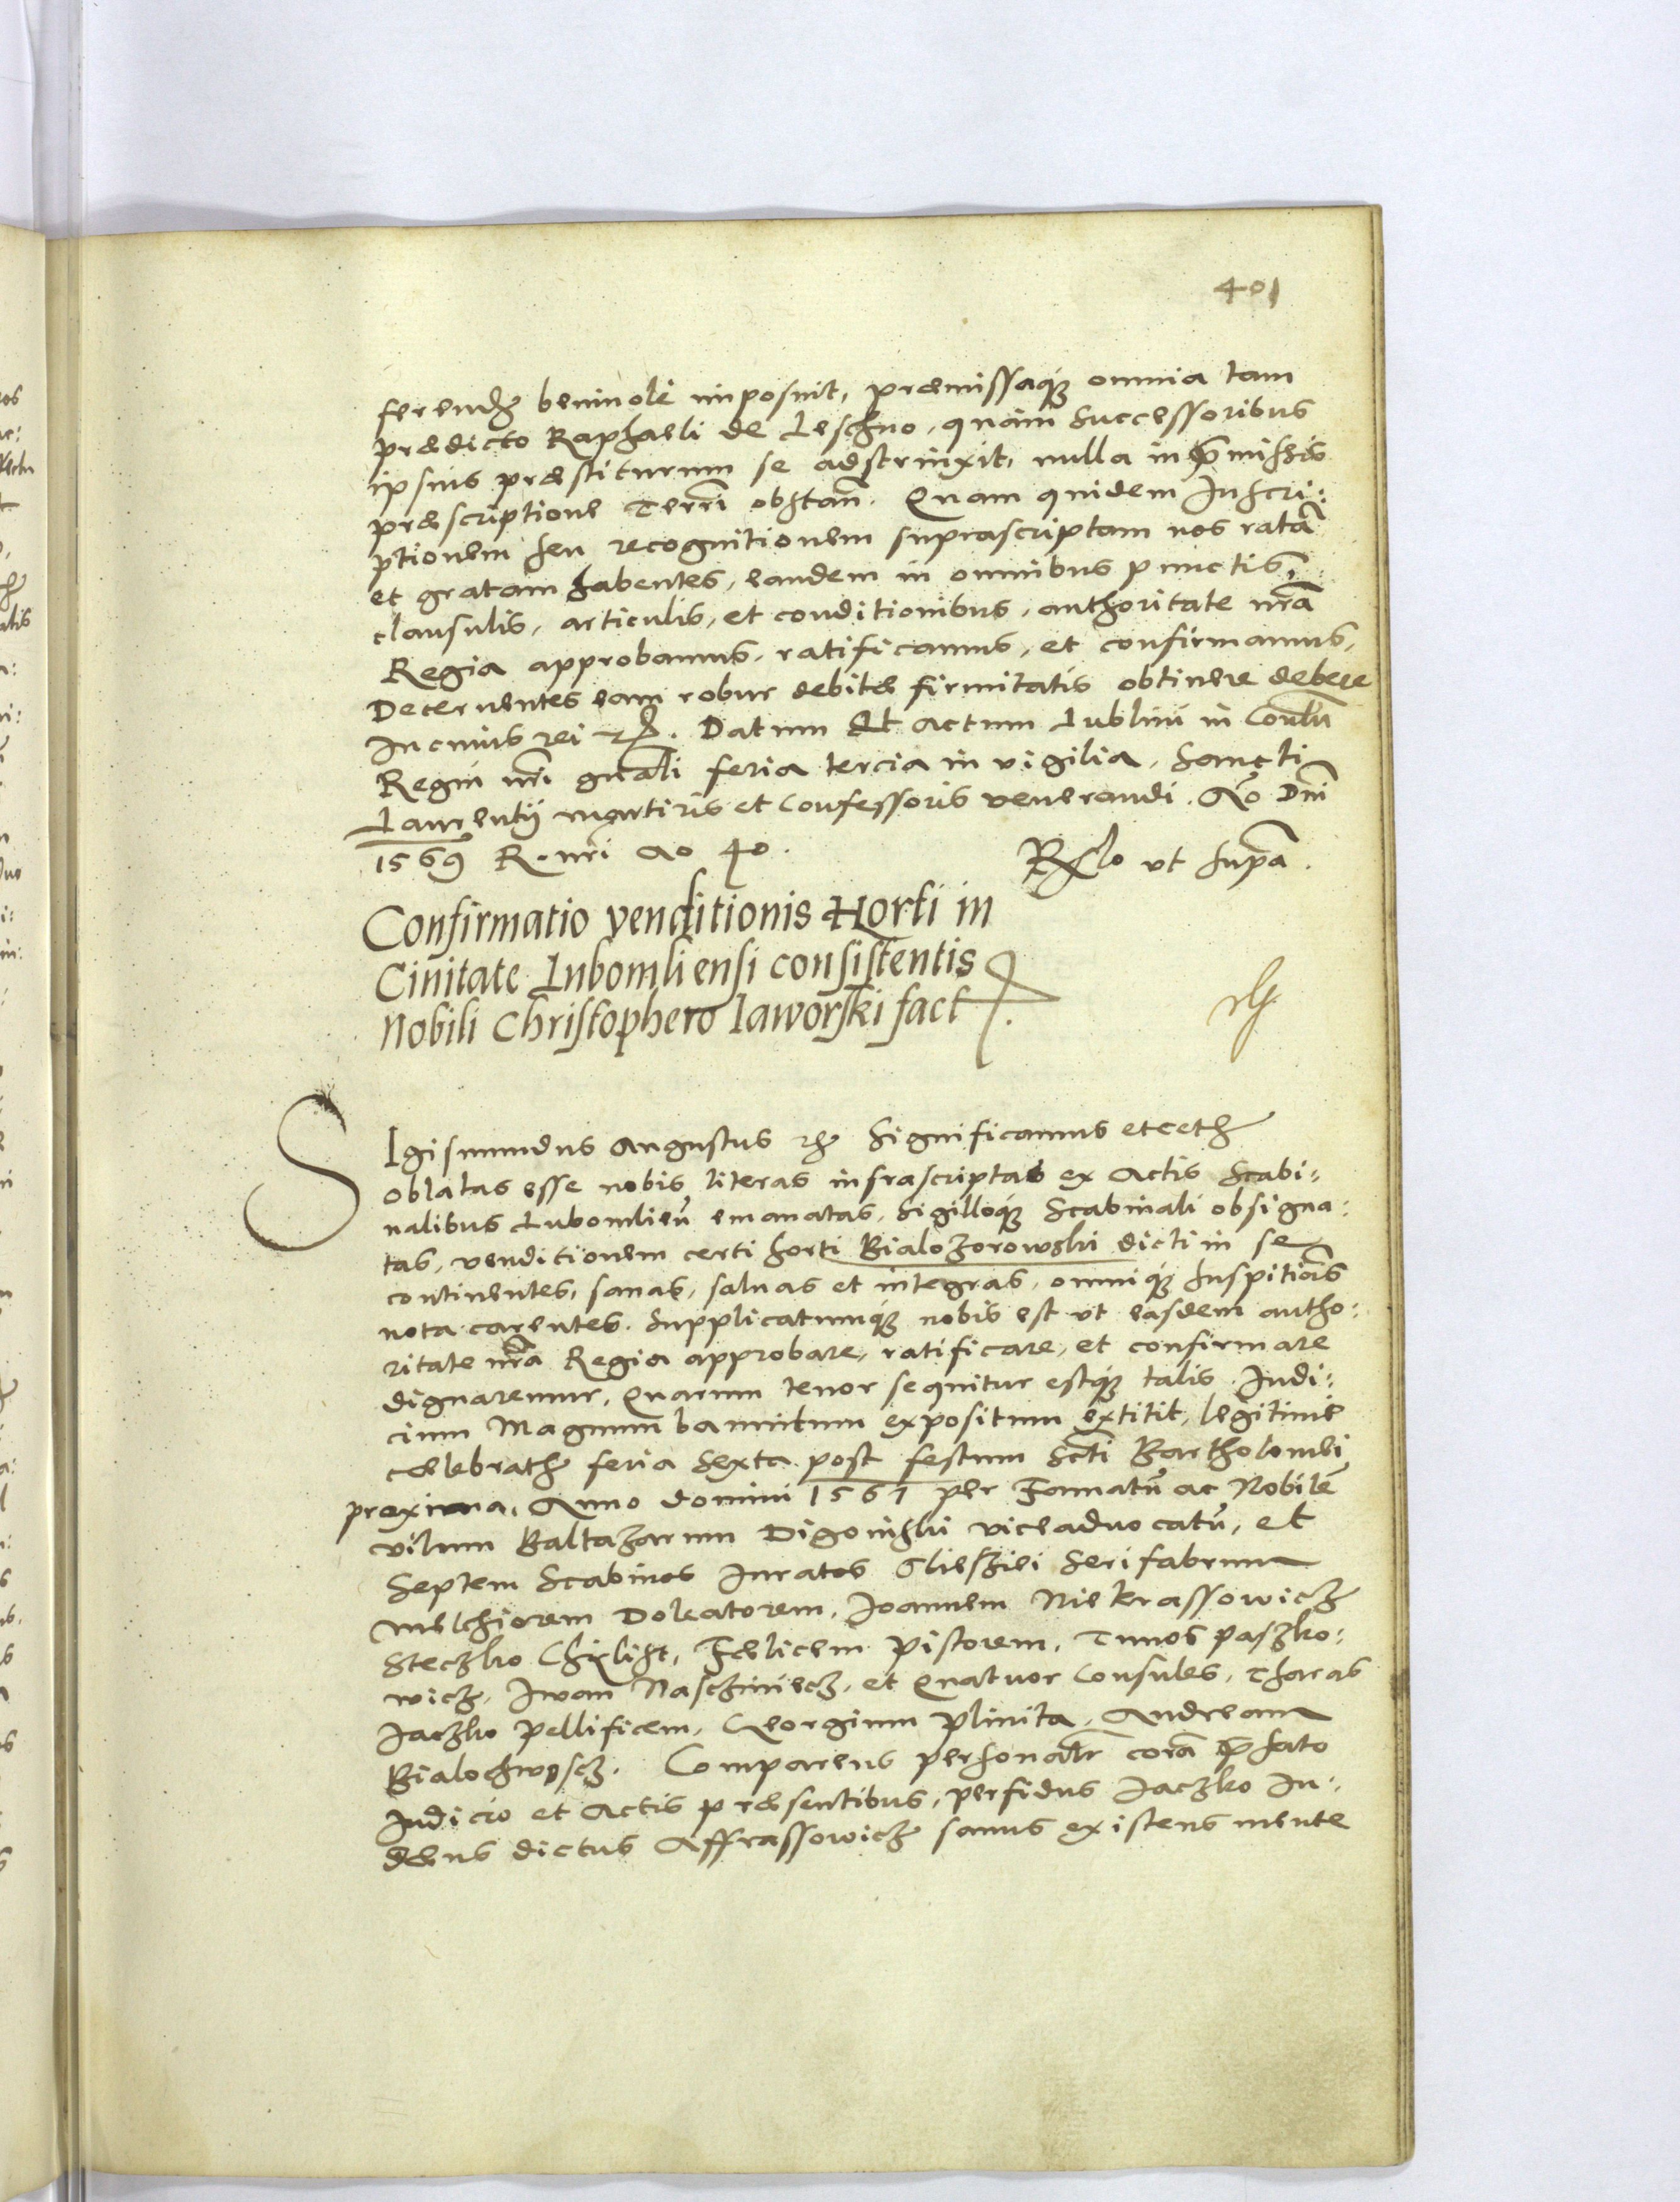 401
ferend benivole imposuit, præmissaque omnia tam
prædicto Raphaeli de Leschno, quam Successoribus
ipsius præstiturum se adstrinxit, nulla in præmissis
præscriptione Terrī obstan̄. Quam quidem Inscri:
ptionem seu recognitionem suprascriptam nos ratā
et gratam habentes, eandem in omnibus punctis,
clausulis, articulis, et conditionibus, authoritate nrā
Regia approbamus, ratificamus, et confirmamus,
Decernentes eam robur debitæ firmitatis obtinere debere
In cuius rei etc. Datum Et actum Lublini in Conven̄
Regni nrī gnāli feria tercia in vigilia, Sancti
Laurentij martiris et Confessoris venerandi. Aō Dnī
1569 R. nrī ao 40.
Rlō ut supā.
Confirmatio venditionis Horti in
Civitate Lubomliensi consistentis
Nobili Christophero Iaworski fact.
SIgismundus Augustus etc Significamus etceth
oblatas esse nobis literas infrascriptas ex Actis Scabi:
nalibus Lubomlien̄ emanatas, Sigilloque Scabinali obsigna:
tas, venditionem certi horti Bialozorowski dicti in se
continentes, sanas, salvas et integras, omnique suspitiōis
nota carentes. Supplicatumque nobis est ut easdem autho:
ritate nrā Regia approbare, ratificare, et confirmare
dignaremur, Quarum tenor sequitur estque talis. Iudi:
cium Magnum bannitum expositum extitit, legitime
celebrath feria Sexta post festum Scti Bartholomei
proxima, Anno domini 1561 per Famatū ac Nobilē
virum Baltazarum Digoinski viceadvocatū, et
Septem Scabinos Iuratos Glieskiei Serifabrum
Melchiorem Doleatorem, Joannem Niekrassowicz
Steczko Chxlist, Felicem Pistorem, Tunos paszko:
wicz, Iwan Nasczmiecz, et Quatuor Consules, Tharas
Iaczko Pellificem, Georgium Plinita, Andream
Bialochwoscz. Comparens personalr corā præfato
Judicio et Actis præsentibus, perfidus Iaczko Iu:
dæus dictus Affrassowicz sanus existens mente